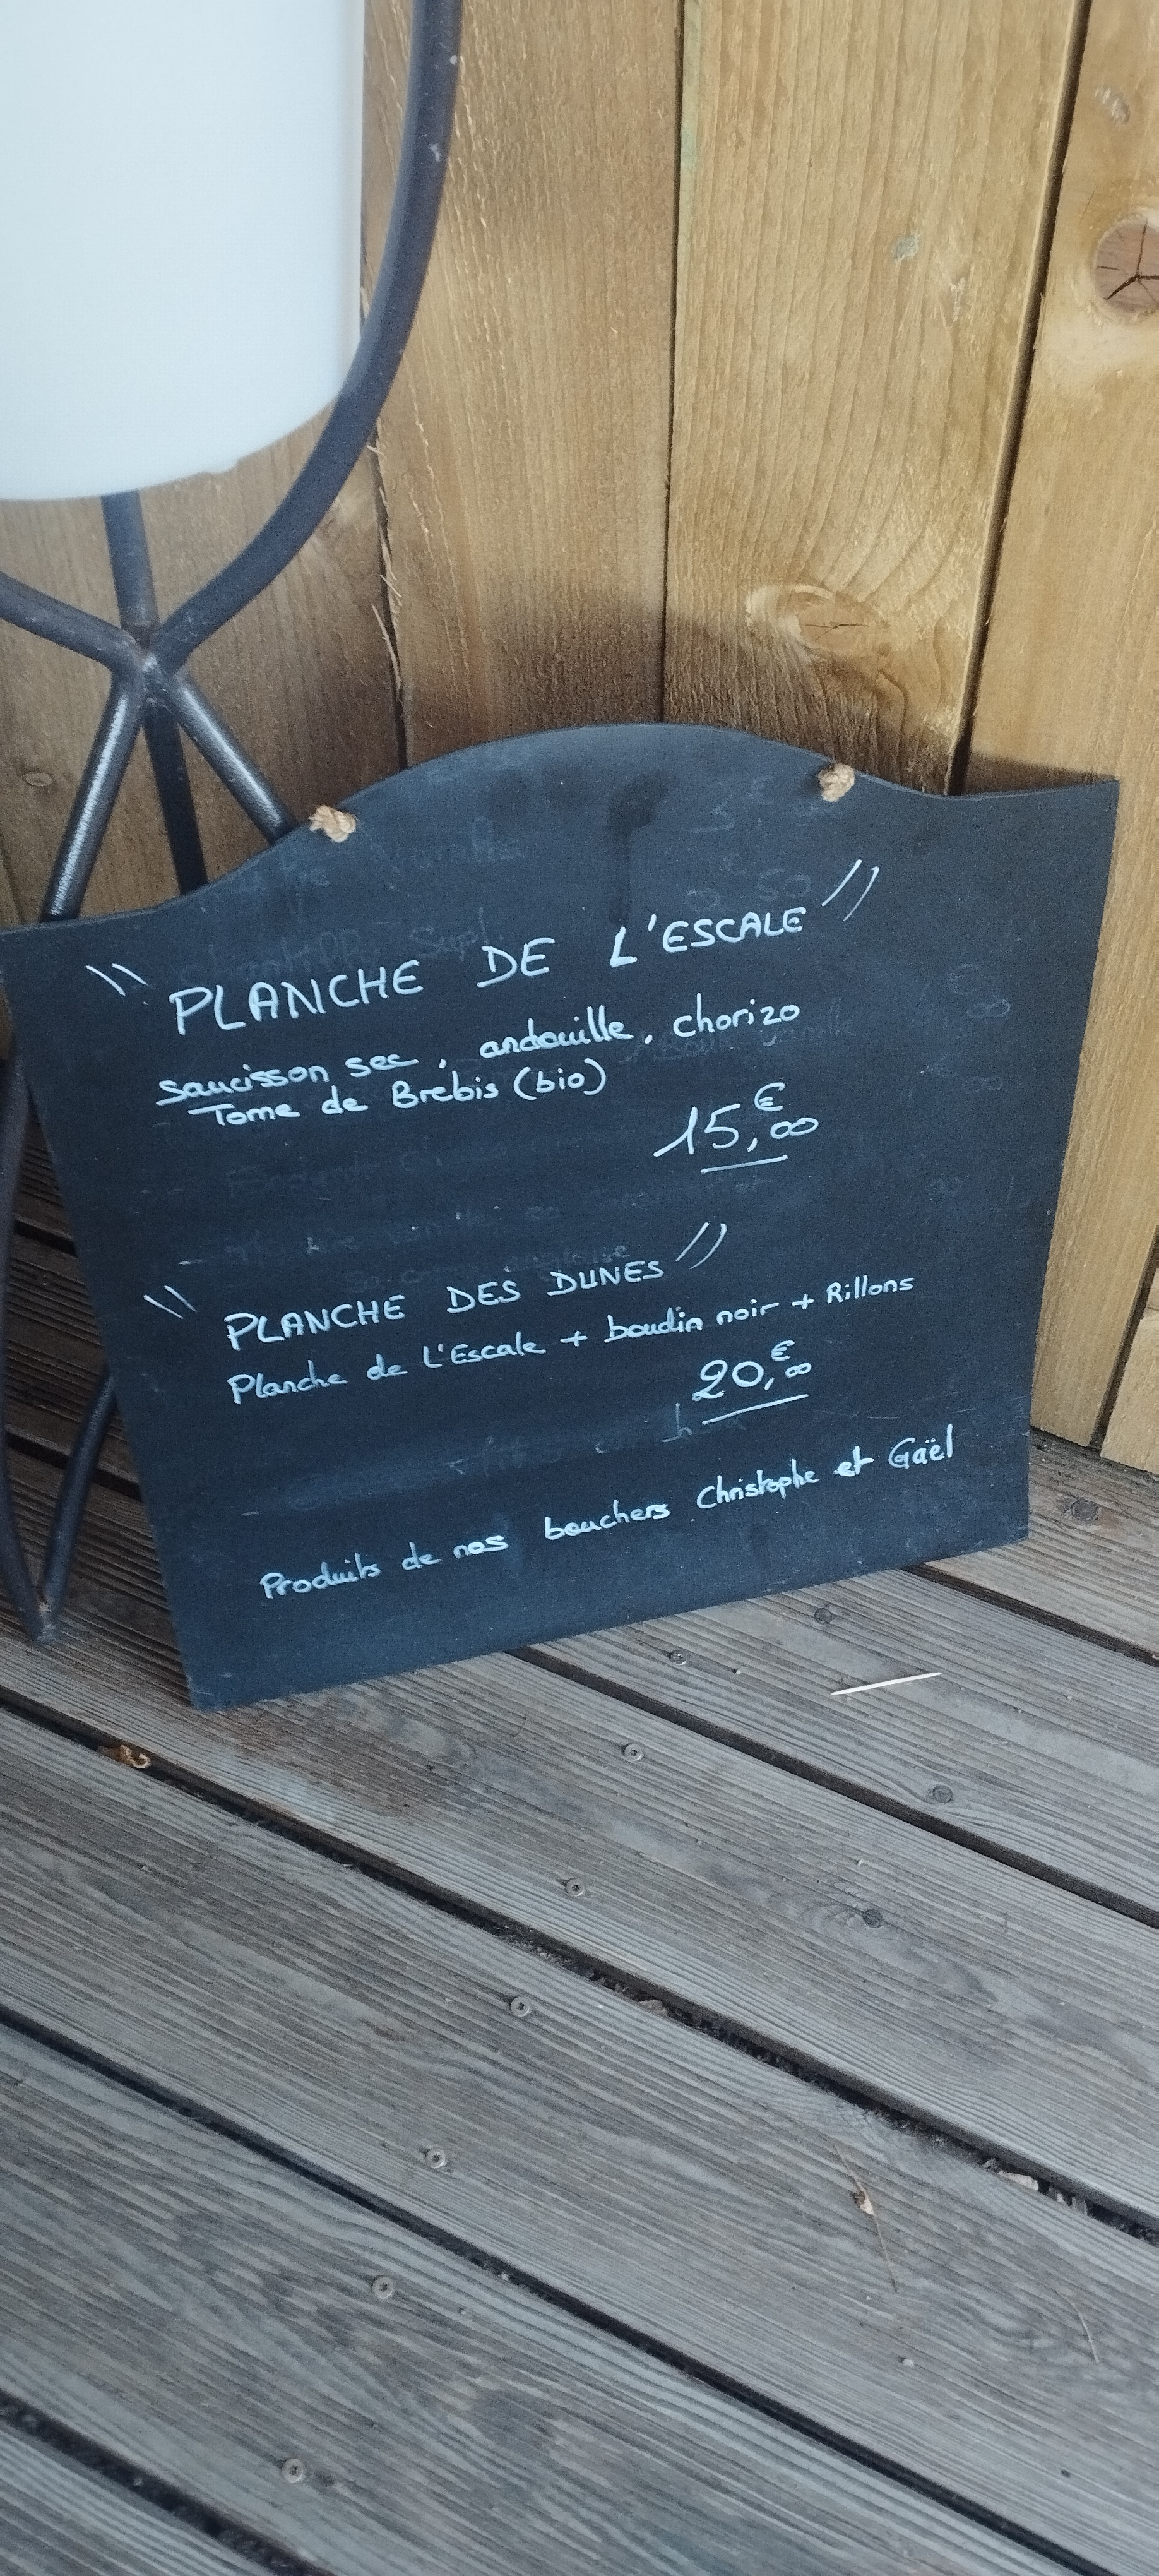 " PLANCHE DE L'ESCALE "
saucisson sec, andouille, chorizo
Tome de Brebis (bio)
15,€00
" PLANCHE DES DUNES "
Planche de L'Escale + boudin noir + Rillons
20,€00
Produits de nos bouchers Christophe et Gaël